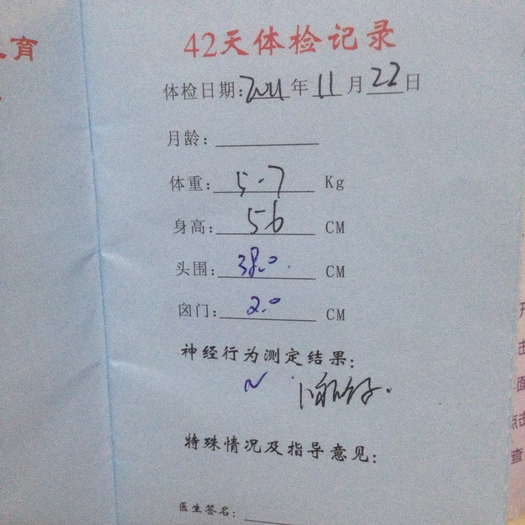 育
42天体检记录
体检日期:2011年11月22日
月龄:
体重:5.7 Kg
身高:56 CM
头围:38.0 CM
囟门:2.0 CM
神经行为测定结果:
N
特殊情况及指导意见:
医生签名:
面
点击
查